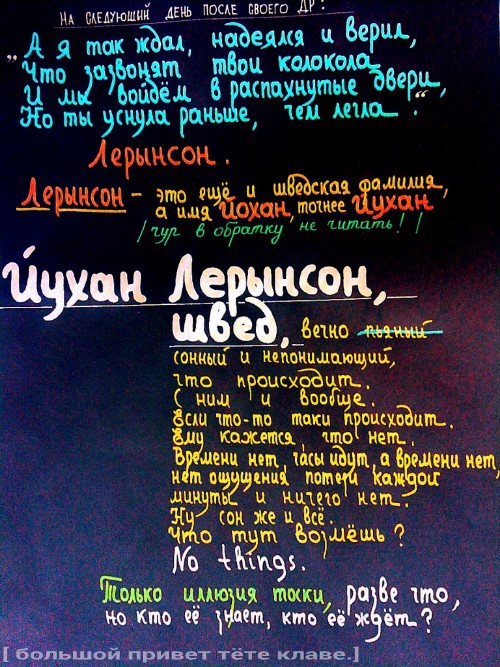 НА СЛЕДУЮЩИЙ ДЕНЬ ПОСЛЕ СВОЕГО ДР:
„А я так ждал, надеялся и верил,
Что зазвонят твои колокола
И мы войдём в распахнутые двери,
Но ты уснула раньше, чем легла."
Лерынсон.
Лерынсон - это ещё и шведская фамилия,
а имя Йохан, точнее Йухан
/чур в обратку не читать!/
Йухан Лерынсон,
швед, вечно пьяный
сонный и непонимающий,
что происходит.
С ним и вообще.
Если что-то таки происходит.
Ему кажется, что нет.
Времени нет, часы идут, а времени нет,
нет ощущения потери каждой
минуты и ничего нет.
Ну сон же и всё.
Что тут возмёшь?
No things.
Только иллюзия тоски, разве что,
но кто её знает, кто её ждёт?
[ большой привет тёте клаве.]